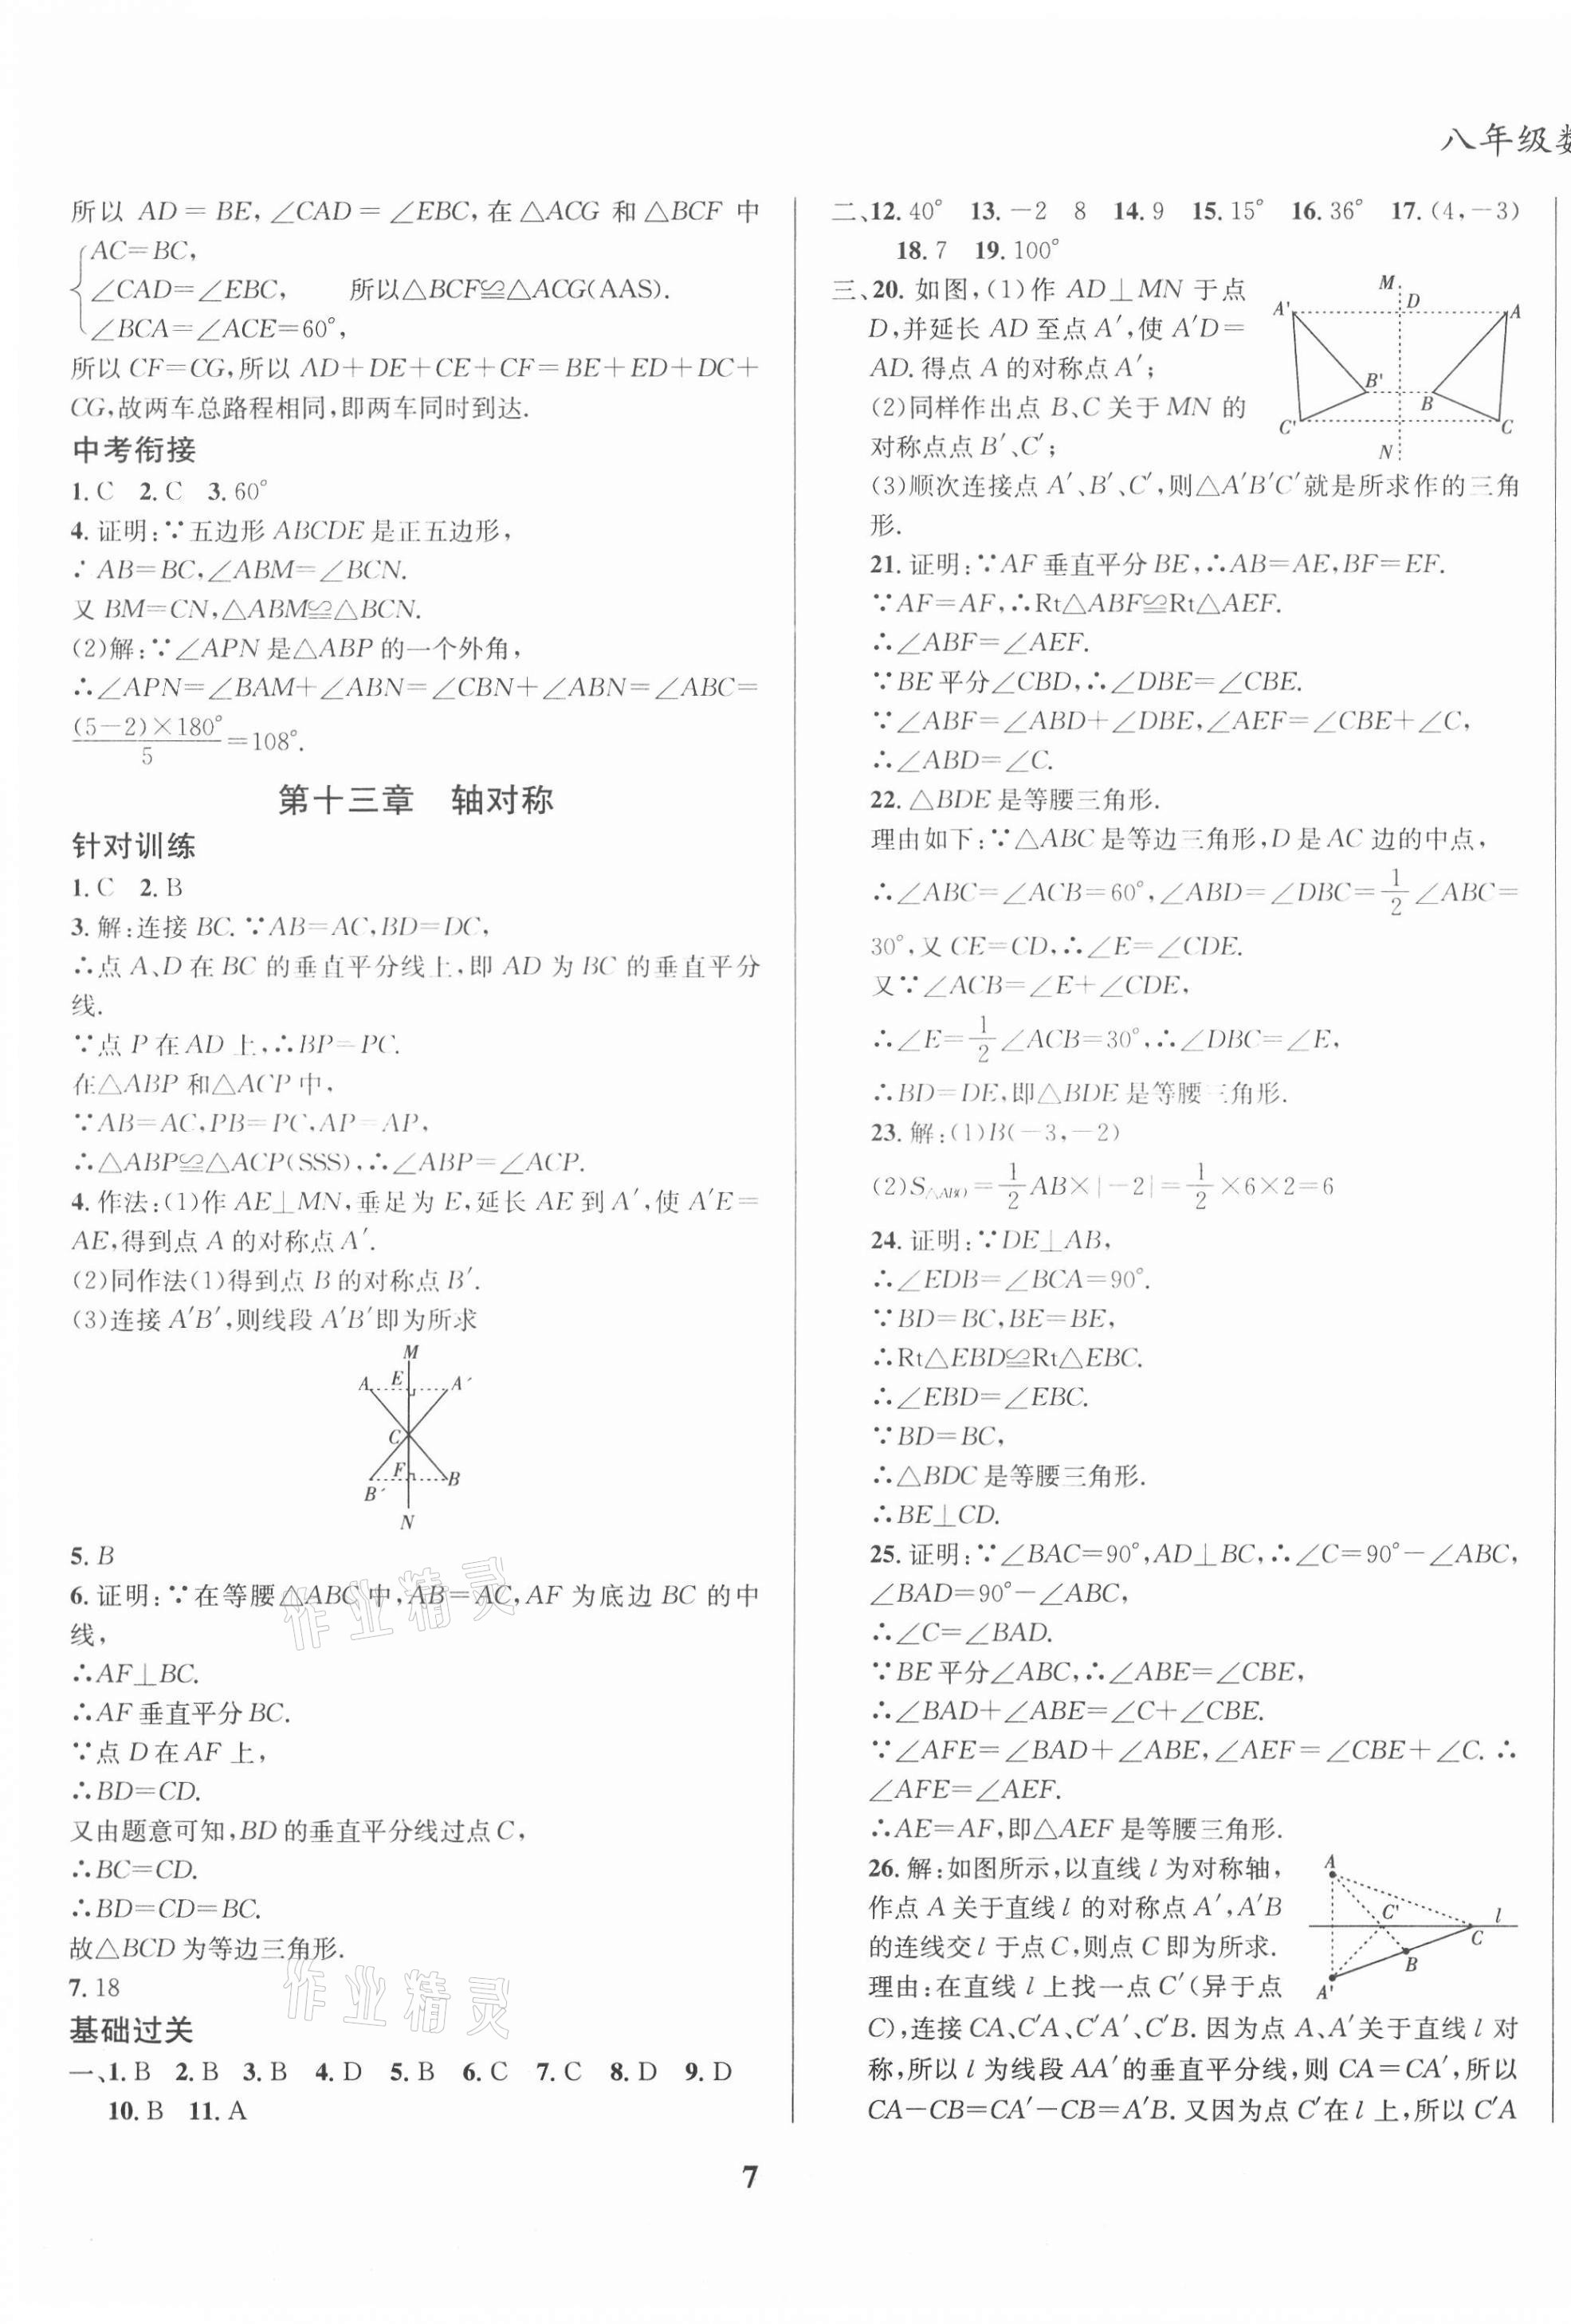 八年级数
所以 AD=BE,∠CAD=∠EBC,在△ACG 和△BCF 中
AC=BC,
∠CAD=∠EBC, 所以△BCF≌△ACG(AAS).
∠BCA=∠ACE=60°,
所以CF=CG,所以 AD+DE+CE+CF=BE+ED+DC+
CG,故两车总路程相同,即两车同时到达.
中考衔接
1.C 2.C 3.60°
4.证明:∵五边形ABCDE是正五边形,
∴AB=BC,∠ABM=∠BCN.
又BM=CN,△ABM≌△BCN.
(2)解:∵∠APN是△ABP的一个外角,
∴∠APN=∠BAM+∠ABN=∠CBN+∠ABN=∠ABC=
(5-2)×180°/5=108°.
第十三章 轴对称
针对训练
1.C 2.B
3.解:连接BC.∵AB=AC,BD=DC,
∴点A、D在BC的垂直平分线上,即AD为BC的垂直平分
线.
∵点P在AD上,∴BP=PC.
在△ABP和△ACP中,
∵AB=AC,PB=PC,AP=AP,
∴△ABP≌△ACP(SSS),∴∠ABP=∠ACP.
4.作法:(1)作AE⊥MN,垂足为E,延长AE到A′,使A′E=
AE,得到点A的对称点A′.
(2)同作法(1)得到点B的对称点B′.
(3)连接A′B′,则线段A′B′即为所求
M
A E A′
C
F B
B′
N
5.B
6.证明:∵在等腰△ABC中,AB=AC,AF为底边BC的中
线,
∴AF⊥BC.
∴AF垂直平分BC.
∵点D在AF上,
∴BD=CD.
又由题意可知,BD的垂直平分线过点C,
∴BC=CD.
∴BD=CD=BC.
故△BCD为等边三角形.
7.18
基础过关
一、1.B 2.B 3.B 4.D 5.B 6.C 7.C 8.D 9.D
10.B 11.A
二、12.40° 13.-2 8 14.9 15.15° 16.36° 17.(4,-3)
18.7 19.100°
三、20.如图,(1)作AD⊥MN于点
D,并延长AD至点A′,使A′D=
AD.得点A的对称点A′;
(2)同样作出点B、C关于MN的
对称点点B′、C′;
M
A' D A
B' B
C' C
N
(3)顺次连接点A′、B′、C′,则△A′B′C′就是所求作的三角
形.
21.证明:∵AF垂直平分BE,∴AB=AE,BF=EF.
∵AF=AF,∴Rt△ABF≌Rt△AEF.
∴∠ABF=∠AEF.
∵BE平分∠CBD,∴∠DBE=∠CBE.
∵∠ABF=∠ABD+∠DBE,∠AEF=∠CBE+∠C,
∴∠ABD=∠C.
22.△BDE是等腰三角形.
理由如下:∵△ABC是等边三角形,D是AC边的中点,
∴∠ABC=∠ACB=60°,∠ABD=∠DBC=1/2∠ABC=
30°,又CE=CD,∴∠E=∠CDE.
又∵∠ACB=∠E+∠CDE,
∴∠E=1/2∠ACB=30°,∴∠DBC=∠E,
∴BD=DE,即△BDE是等腰三角形.
23.解:(1)B(-3,-2)
(2)S△ABO=1/2AB×|-2|=1/2×6×2=6
24.证明:∵DE⊥AB,
∴∠EDB=∠BCA=90°.
∵BD=BC,BE=BE,
∴Rt△EBD≌Rt△EBC.
∴∠EBD=∠EBC.
∵BD=BC,
∴△BDC是等腰三角形.
∴BE⊥CD.
25.证明:∵∠BAC=90°,AD⊥BC,∴∠C=90°-∠ABC,
∠BAD=90°-∠ABC,
∴∠C=∠BAD.
∵BE平分∠ABC,∴∠ABE=∠CBE,
∴∠BAD+∠ABE=∠C+∠CBE.
∵∠AFE=∠BAD+∠ABE,∠AEF=∠CBE+∠C.∴
∠AFE=∠AEF.
∴AE=AF,即△AEF是等腰三角形.
26.解:如图所示,以直线l为对称轴,
作点A关于直线l的对称点A′,A′B
的连线交l于点C,则点C即为所求.
理由:在直线l上找一点C′(异于点
A
C' l
C
B
A'
C),连接CA、C′A、C′A′、C′B.因为点A、A′关于直线l对
称,所以l为线段AA′的垂直平分线,则CA=CA′,所以
CA-CB=CA′-CB=A′B.又因为点C′在l上,所以C′A
7
作业精灵
作业精灵